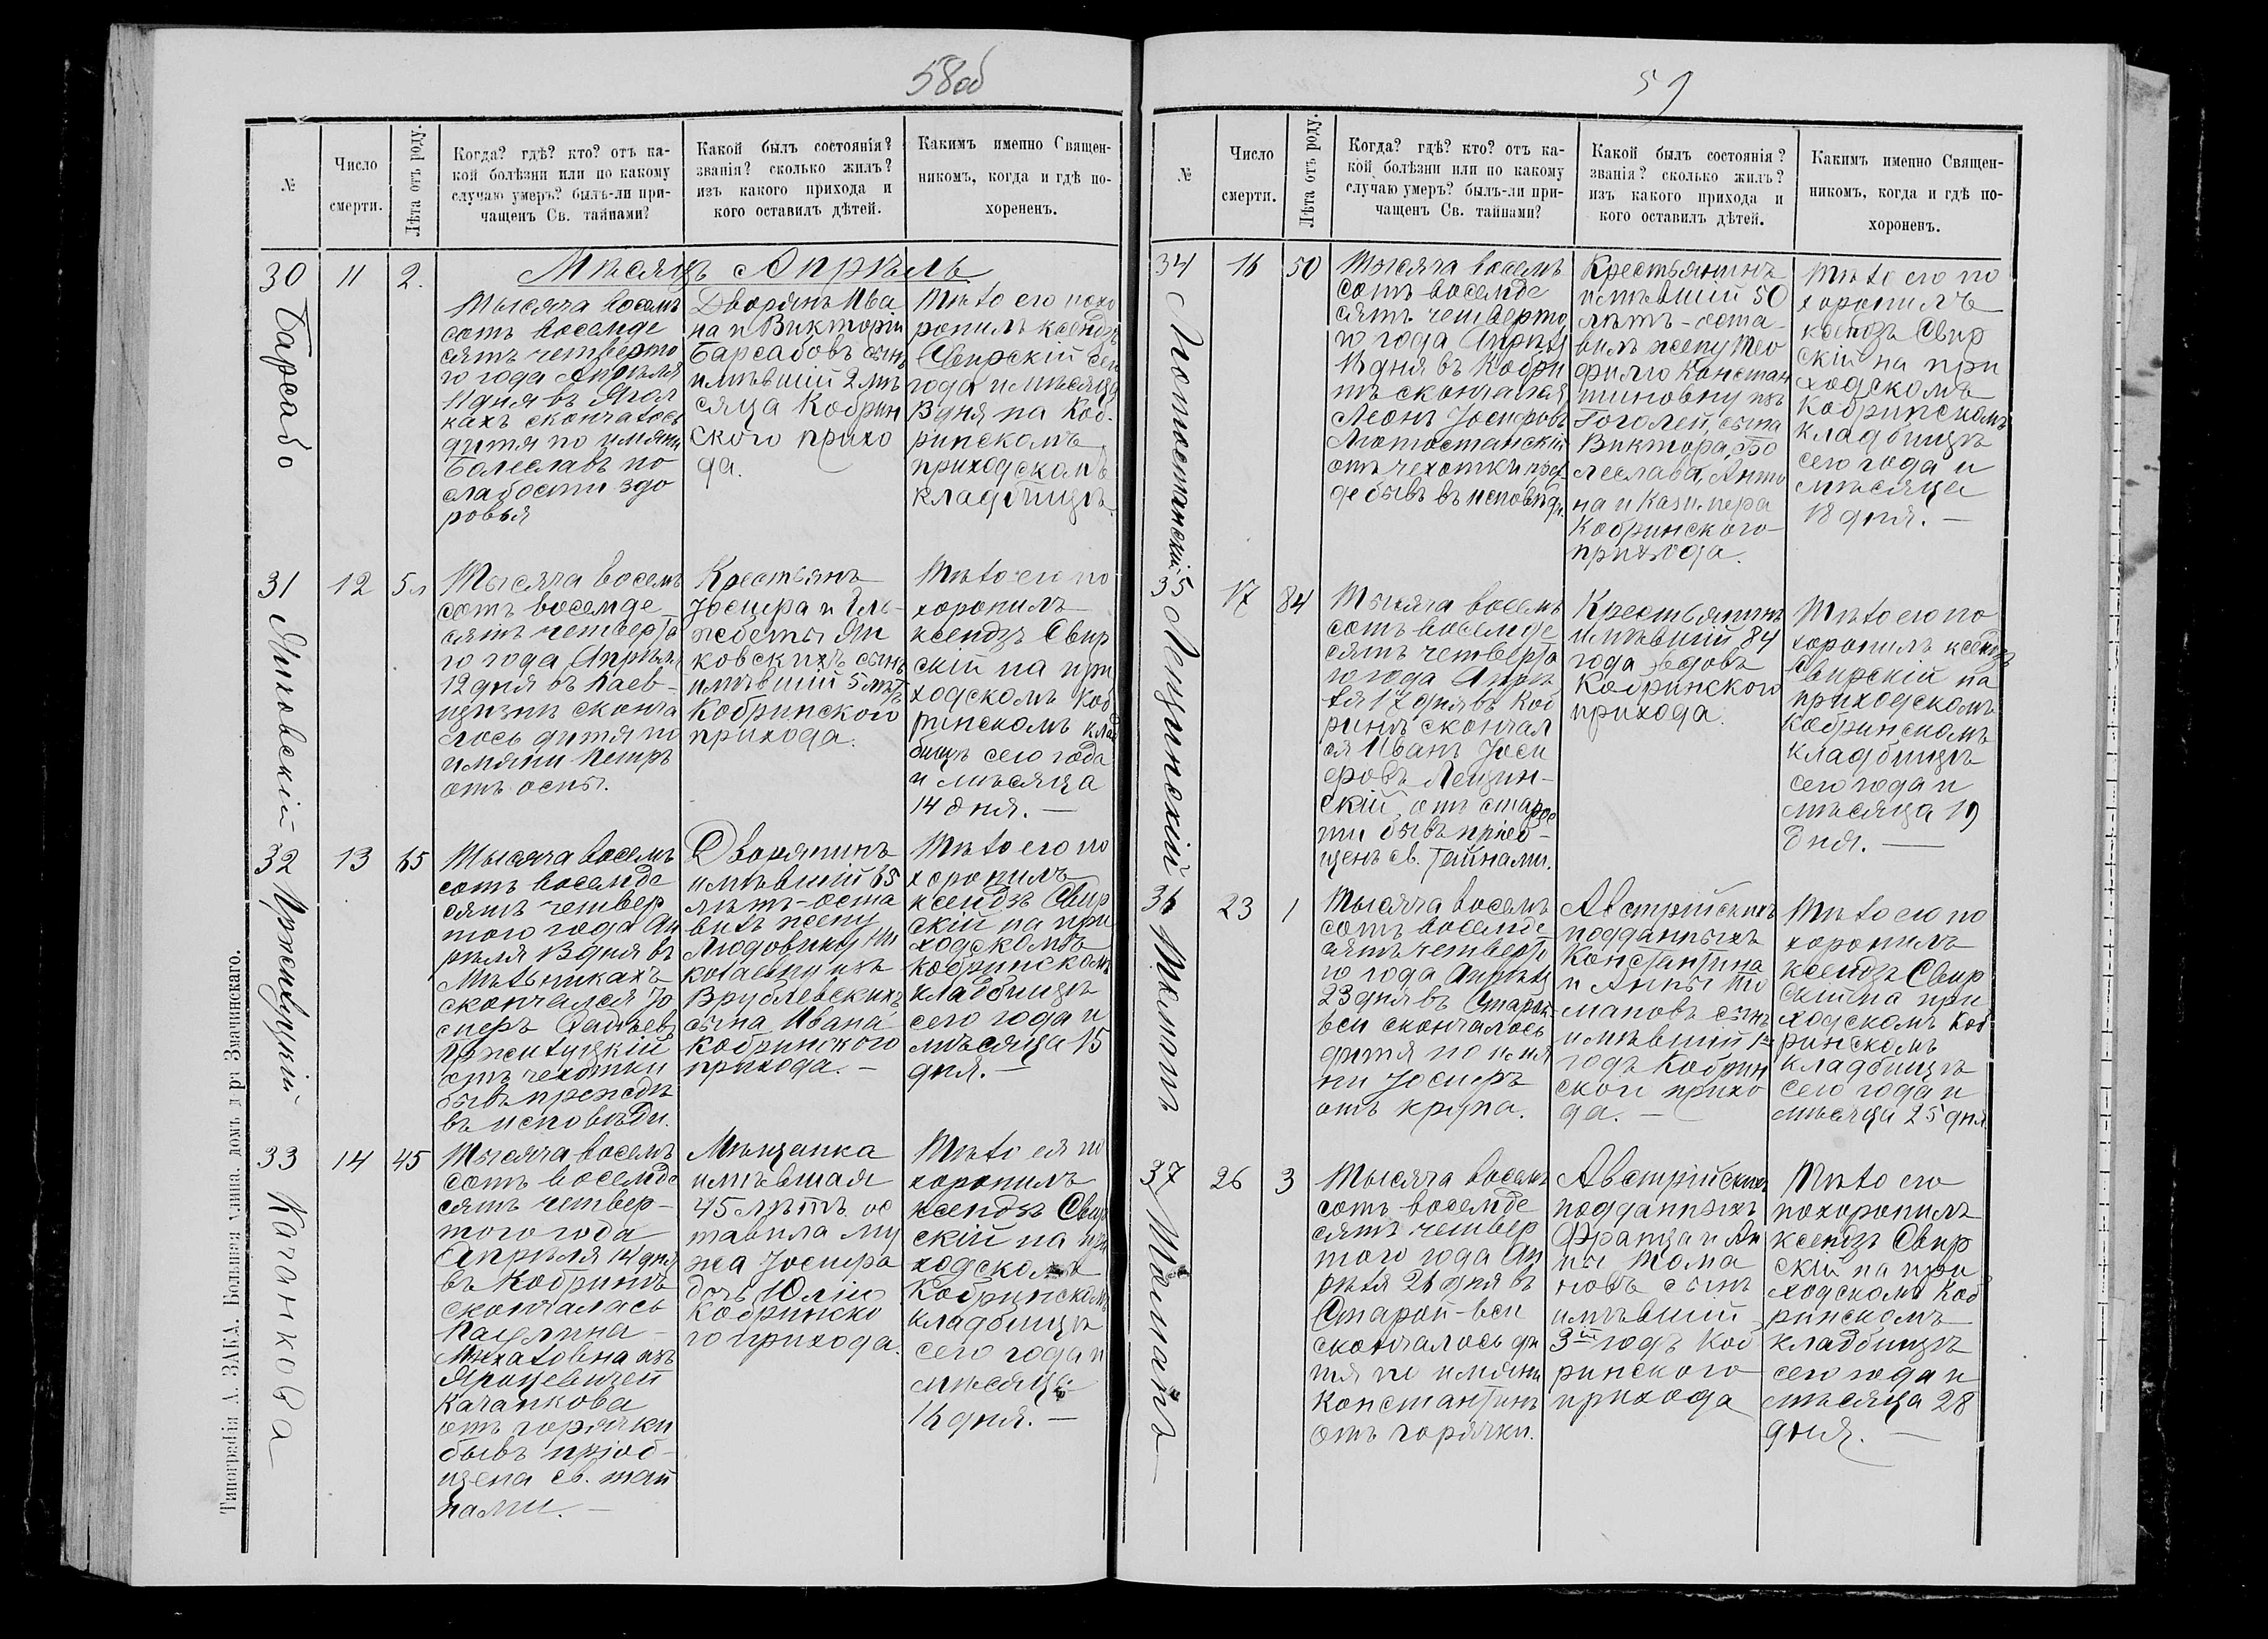 58об
№
Число
смерти.
Лѣта отъ роду.
Когда? гдѣ? кто? отъ ка-
кой болѣзни или по какому
случаю умеръ? былъ-ли при-
чащенъ Св. тайнами?
Какой былъ состоянія?
званія? сколько жилъ?
изъ какого прихода и
кого оставилъ дѣтей.
Какимъ именно Священ-
никомъ, когда и гдѣ по-
хорененъ.
Мѣсяцъ Апрѣль
30
Барсабо
11
2.
Тысяча восемь
сотъ восемде
сятъ четверто
го года Апрѣля
11 дня въ
кахъ скончалось
дитя по имяни
Болеславъ по
слабости здо
ровья
Дворянъ Ива
на и Викторіи
Барсабовъ сынъ
имѣвшій 2 мѣ
сяца Кобрин
ского прихо
да.
Тѣло его похо
ронилъ ксендзъ
Свирскій сего
года и мѣсяца
13 дня на Коб-
ринскомъ
приходскомъ
кладбищѣ.
31
Янковскій
12
5 л
Тысяча восемь
сотъ восемде
сятъ четверта
го года Апрѣля
12 дня въ Каев-
щизнѣ сконча
лось дитя по
имяни Петръ
отъ оспы.
Крестьянъ
Іосифа и Эль-
жбеты Ян
ковскихъ сынъ
имѣвшій 5 лѣтъ
Кобринского
прихода.
Тѣло его по
хоронилъ
ксендзъ Свир
скій на при
ходскомъ Коб
ринскомъ клад
бищѣ сего года
и мѣсяца
14 дня. —
32
Пржитуцкій
13
65
Тысяча восемь
сотъ восемде
сятъ четвер
того года Ап
рѣля 13 дня въ
Мѣльникахъ
скончался Іо
сифъ Фадѣевъ
Пржитуцкій
отъ чехотки
бывъ прежде
въ исповѣди.
Дворянинъ
имѣвшій 65
лѣтъ - оста
вилъ жену
Людовику Ни
колаевну изъ
Врублевскихъ
сына Ивана
Кобринского
прихода. —
Тѣло его по
хоронилъ
ксендзъ Свир
скій на при
ходскомъ
Кобринскомъ
кладбищѣ
сего года и
мѣсяца 15
дня. —
33
Качанкова
14
45
Тысяча восемь
сотъ восемде
сятъ четвер-
того года
Апрѣля 14 дня
въ Кобринѣ
скончалась
Паулина
Михаловна изъ
Яроцевичей
Качанкова
отъ горячки
бывъ пріоб-
щена св. тай
нами. —
Мѣщанка
имѣвшая
45 лѣтъ ос
тавила му
жа Іосифа
дочь Юлію
Кобринско
го прихода.
Тѣло ея по
хоронилъ
ксендзъ Свир
скій на при
ходскомъ
Кобринскомъ
кладбищѣ
сего года и
мѣсяца
16 дня. —
Типографія А. ЗАКА. Большая улица, домъ д-ра Значинскаго.
59
№
Число
смерти.
Лѣта отъ роду.
Когда? гдѣ? кто? отъ ка-
кой болѣзни или по какому
случаю умеръ? былъ-ли при-
чащенъ Св. тайнами?
Какой былъ состоянія?
званія? сколько жилъ?
изъ какого прихода и
кого оставилъ дѣтей.
Какимъ именно Священ-
никомъ, когда и гдѣ по-
хороненъ.
34
Лютостанскій
16
50
Тысяча восемь
сотъ восемде
сятъ четверто
го года Апрѣля
16 дня въ Кобри
нѣ скончался
Леонъ Іосифовъ
Лютостанскій
отъ чехотки преж
де бывъ въ исповѣди.
Крестьянинъ
имѣвшій 50
лѣтъ - оста-
вилъ жену Тео
филю Констан
тиновну изъ
Гоголей, сына
Виктора, Бо
леслава, Анто
на и Казимера
Кобринского
прихода.
Тѣло его по
хоронилъ
ксендзъ Свир
скій на при
ходскомъ
Кобринскомъ
кладбищѣ
сего года и
мѣсяца
18 дня. —
35
Лещинскій
17
84
Тысяча восемь
сотъ восемде
сятъ четверта
го года Апрѣ
ля 17 дня въ Коб
ринѣ скончал
ся Иванъ Іоси
фовъ Лещин-
скій, отъ старос
ти бывъ пріоб-
щенъ св. Тайнами.
Крестьянинъ
имѣвшій 84
года вдовъ
Кобринского
прихода.
Тѣло его по
хоронилъ ксендзъ
Свирскій на
приходскомъ
Кобринскомъ
кладбищѣ
сего года и
мѣсяца 19
дня. —
36
Томанъ
23
1
Тысяча восемь
сотъ восемде
сятъ четверто
го года Апрѣля
23 дня въ Старой
вси скончалось
дитя по имя
ни Іосифъ
отъ крупа.
Австрійскихъ
подданныхъ
Константина
и Анны То
мановъ сынъ
имѣвшій 1й
годъ Кобрин
ского прихо
да. —
Тѣло его по
хоронилъ
ксендзъ Свир
скій на при
ходскомъ Коб
ринскомъ
кладбищѣ
сего года и
мѣсяца 25 дня
37
Томанъ
26
3
Тысяча восемь
сотъ восемде
сятъ четвер
того года Ап
рѣля 26 дня въ
Старой-вси
скончалось ди
тя по имяни
Константинъ
отъ горячки.
Австрійскихъ
подданныхъ
Франца и Ан
ны Тома
новъ сынъ
имѣвшій
3й годъ Коб
ринского
прихода
Тѣло его
похоронилъ
ксендзъ Свир
скій на при
ходскомъ Коб
ринскомъ
кладбищѣ
сего года и
мѣсяца 28
дня. —